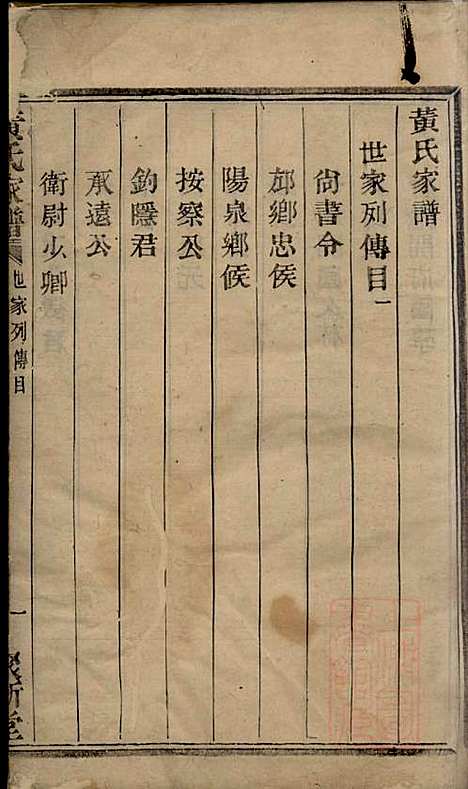 黃氏家譜
世家列傳目一
尙書令
邟鄉忠侯
陽泉鄉侯
按察公
釣隱君
承遠公
衛尉少卿
黃氏家譜
世家列傳目
一